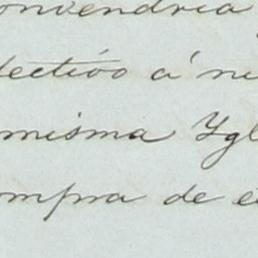 onvendria
lectivo á ni
misma Ygl
ompra de e